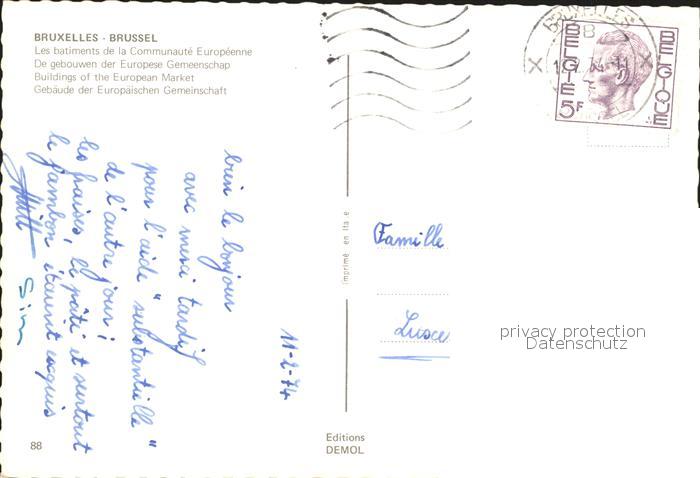 BRUXELLES - BRUSSEL
Les batiments de la Communauté Européenne
De gebouwen der Europese Gemeenschap
Buildings of the European Market
Gebäude der Europäischen Gemeinschaft
11-2-74
bien le bonjour
avec merci tardif
pour l'aide "substantielle"
de l'autre jour;
les fraises, le pâté et surtout
le jambon étaient exquis
88
Imprimé en Italie
Editions
DEMOL
BRUXELLES
BELGIE
BELGIQUE
5F
Famille
Lusce
privacy protection
Datenschutz